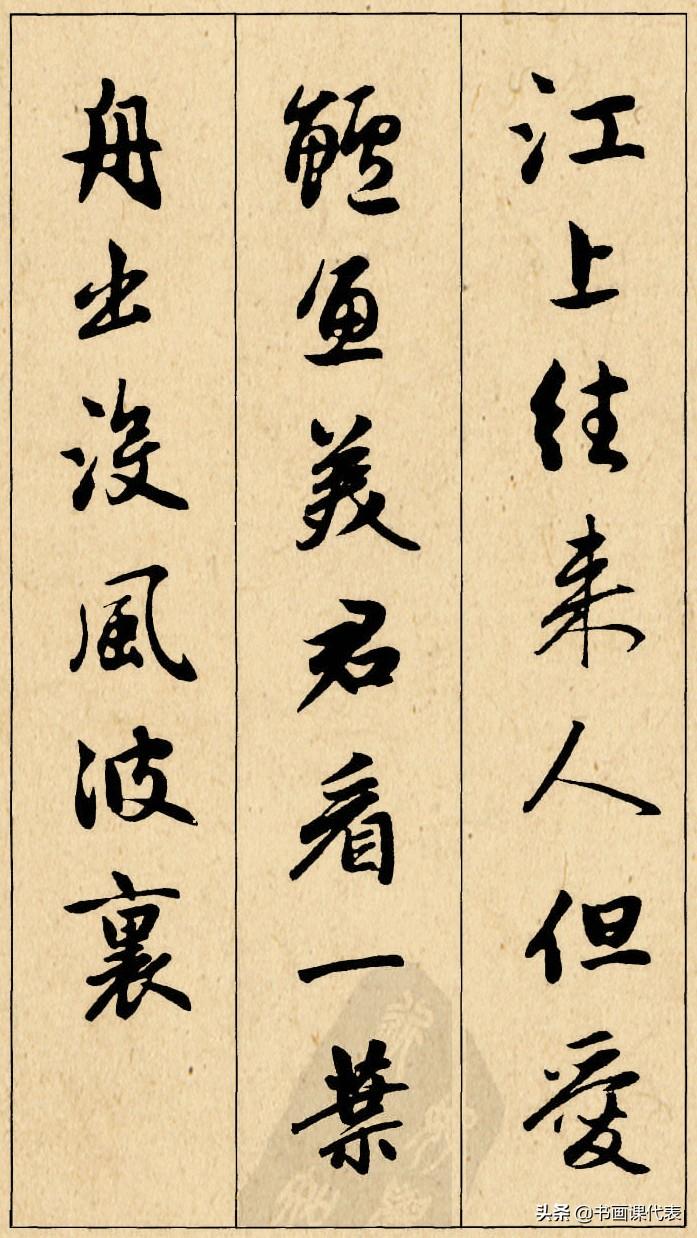 江上往来人但愛
鱸魚美君看一葉
舟出没風波裏
头条 @书画课代表